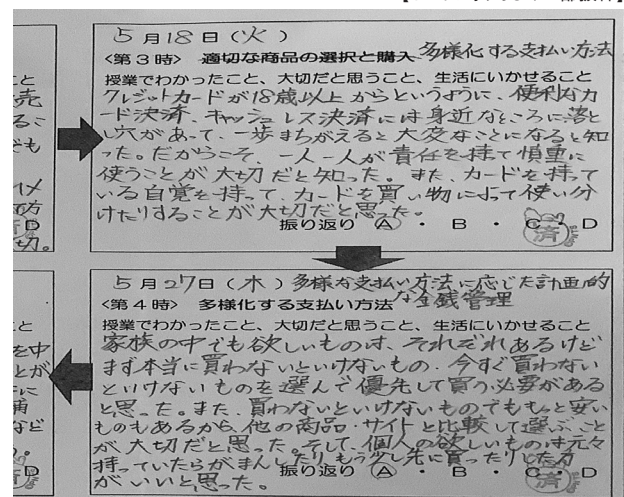 5月18日(火)
〈第3時〉 適切な商品の選択と購入 多様化する支払い方法
授業でわかったこと、大切だと思うこと、生活にいかせること
クレジットカードが18歳以上からというように、便利なカ
ード決済、キャッシュレス決済には身近なところに落と
し穴があって、一歩まちがえると大変なことになると知
った。だからこそ、一人一人が責任を持て慎重に
使うことが大切だと知った。また、カードを持って
いる自覚を持って、カードを買い物によって使い分
けたりすることが大切だと思った。
振り返り A ・ B ・ C ・ D
済
5月27日(木) 多様な支払い方法に応じた計画的
な金銭管理
〈第4時〉 多様化する支払い方法
授業でわかったこと、大切だと思うこと、生活にいかせること
家族の中でも欲しいものは、それぞれあるけど
まず本当に買わないといけないもの・今すぐ買わない
といけないものを選んで優先して買う必要がある
と思った。また、買わないといけないものでももっと安い
ものもあるから、他の商品・サイトと比較して選ぶこと
が大切だと思った。そして、個人の欲しいものは元々
持っていたらがまんしたり、もう少し先に買ったりした方
がいいと思った。
振り返り A ・ B ・ C ・ D
済
こと
売
るこ
でも
D
切。
こと
を中
とが
に
など
D